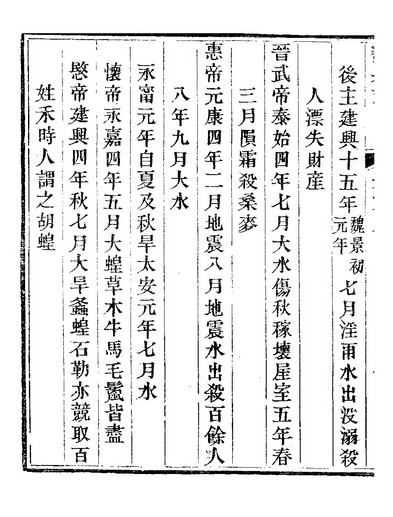 後主建興十五年魏景初元年七月淫雨水出没溺殺
人漂失財產
晉武帝泰始四年七月大水傷秋稼壞屋室五年春
三月隕霜殺桑麥
惠帝元康四年二月地震八月地震水出殺百餘人
八年九月大水
永甯元年自夏及秋旱太安元年七月水
懷帝永嘉四年五月大蝗草木牛馬毛鬣皆盡
愍帝建興四年秋七月大旱螽蝗石勒亦競取百
姓禾時人謂之胡蝗